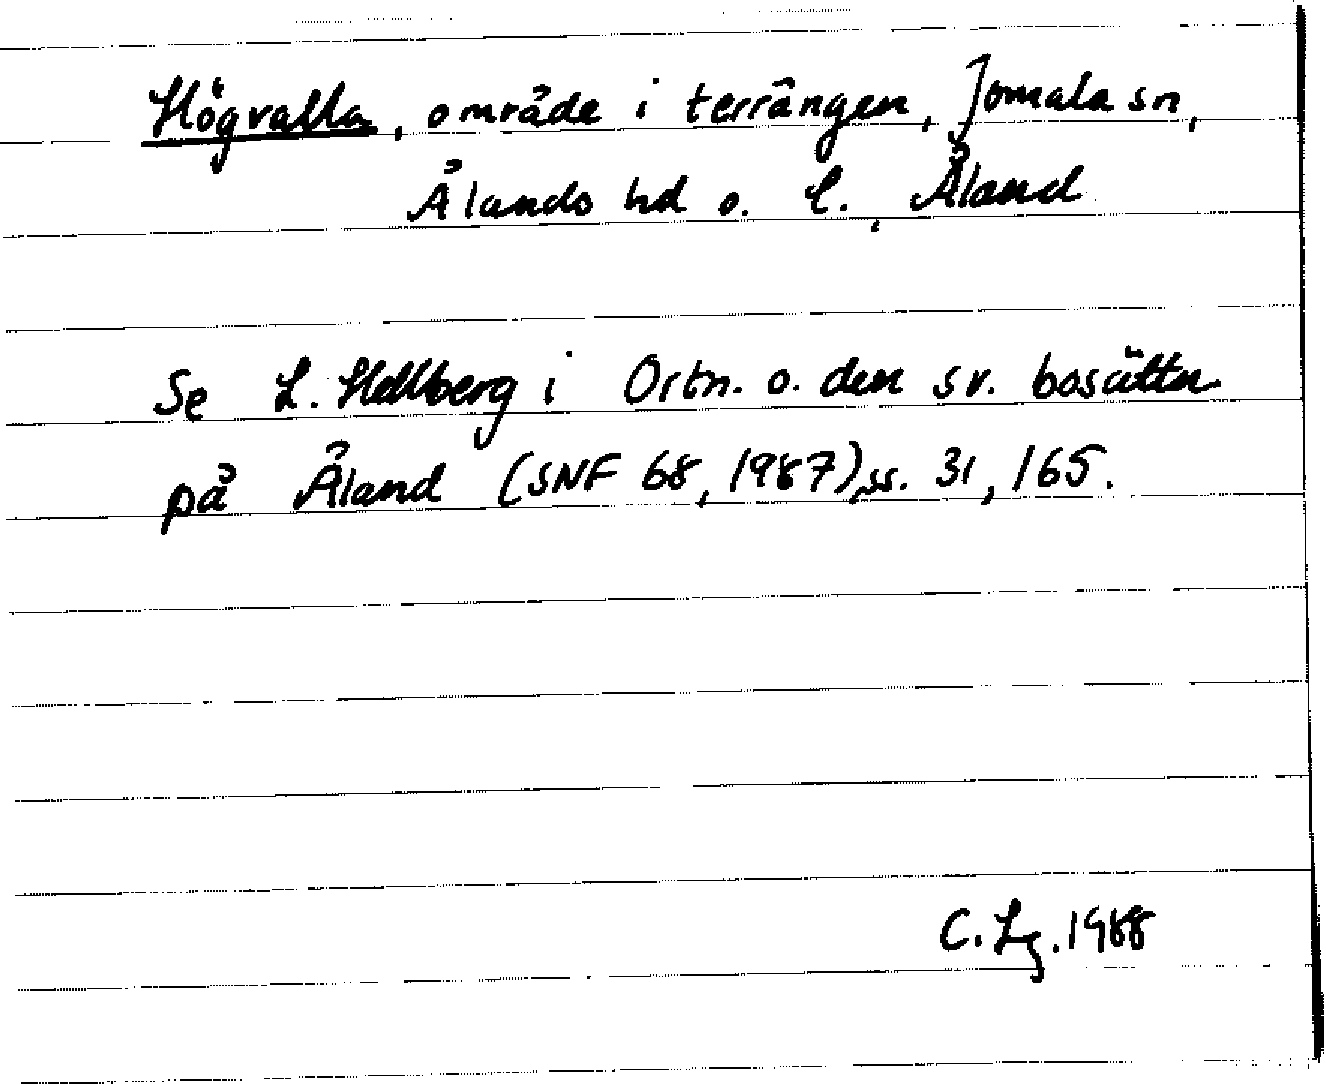 Högvalla, område i terrängen, Jomala sn,
Ålands hd o. l., Åland
Se L. Hellberg i Ortn. o. den sv. bosättn.
på Åland (SNF 68, 1987), ss. 31, 165.
C. Lg. 1988